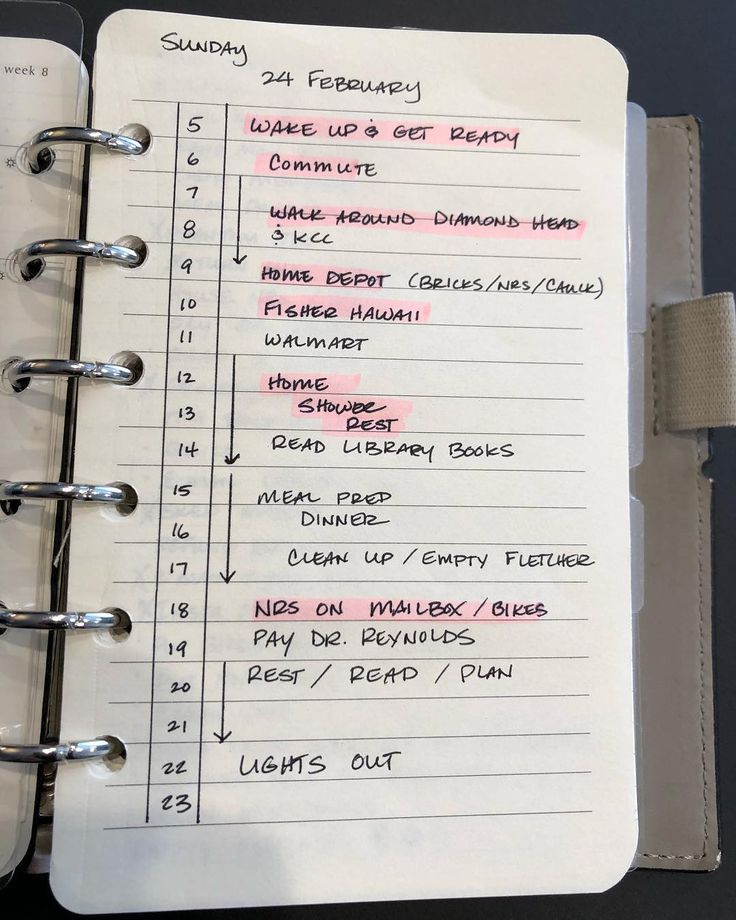 week 8
SUNDAY
24 FEBRUARY
5 WAKE UP & GET READY
6 COMMUTE
7
WALK AROUND DIAMOND HEAD
8 & KCC
9 HOME DEPOT (BRICKS/NRS/CAULK)
10 FISHER HAWAII
11 WALMART
12 HOME
13 SHOWER
REST
14 READ LIBRARY BOOKS
15 MEAL PREP
16 DINNER
17 CLEAN UP / EMPTY FLETCHER
18 NRS ON MAILBOX / BIKES
19 PAY DR. REYNOLDS
20 REST / READ / PLAN
21
22 LIGHTS OUT
23